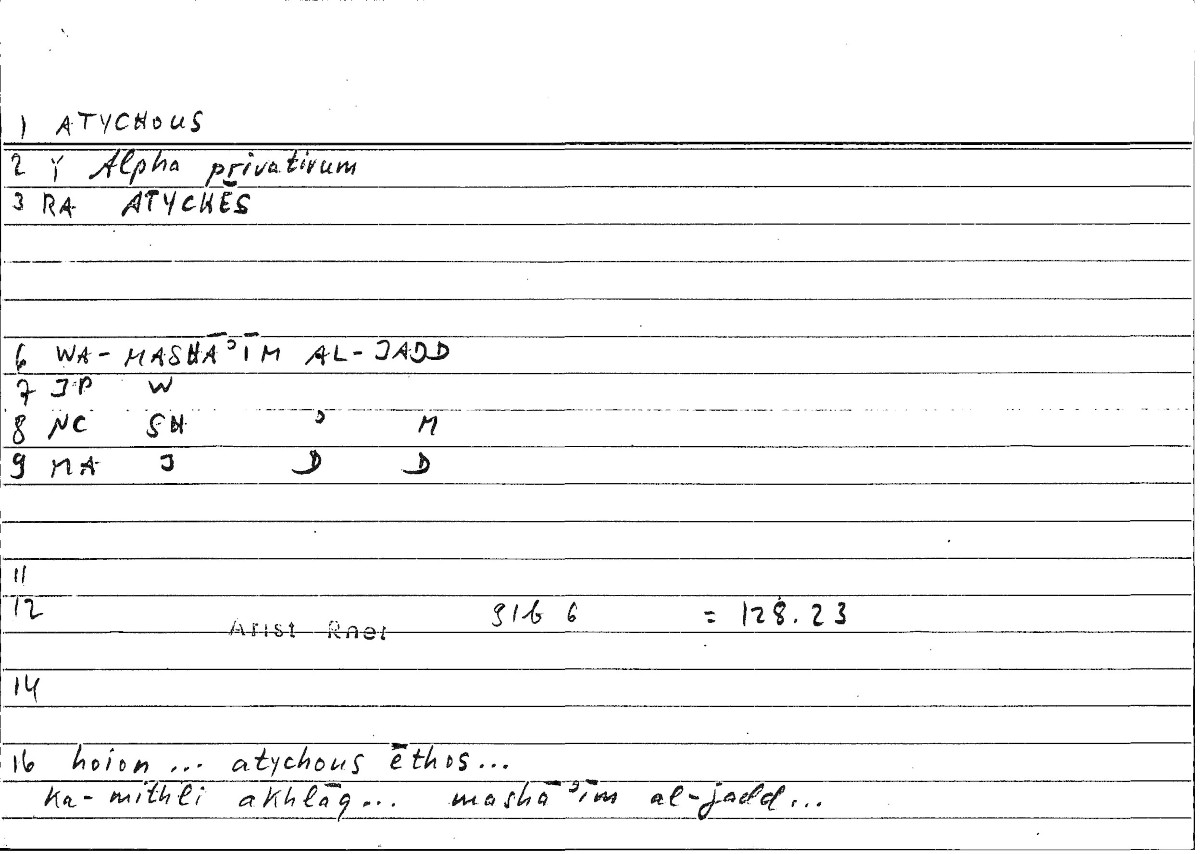 1 ATYCHOUS
2 Y Alpha privativum
3 RA ATYCHĒS
6 WA-MASHĀʾĪM AL-JADD
7 JP W
8 NC SH ʾ M
9 MA J D D
11
12 Arist Rhet 91b 6 = 128.23
14
16 hoion ... atychous ēthos...
ka-mithli akhlāq... mashāʾīm al-jadd...